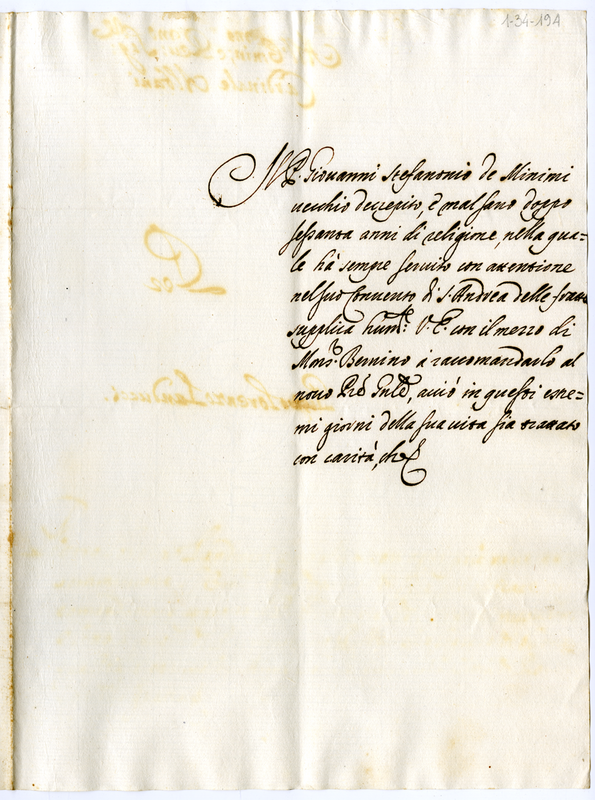 1-34-194
Il P. Giovanni Stefanonio de Minimi
vecchio decrepito, è mal sano doppo
sessanta anni di religione, nella qua=
le hà sempre servito con attentione
nel suo Convento di S. Andrea delle fratte
supplica hum.te V. E. con il mezzo di
Mons.r Bernino à raccomandarlo al
novo Prô Gnle, acciò in questi estre=
mi giorni della sua vita sia trattato
con carità, che
Cardinale Albani
Per
Lorenzo Landucci.